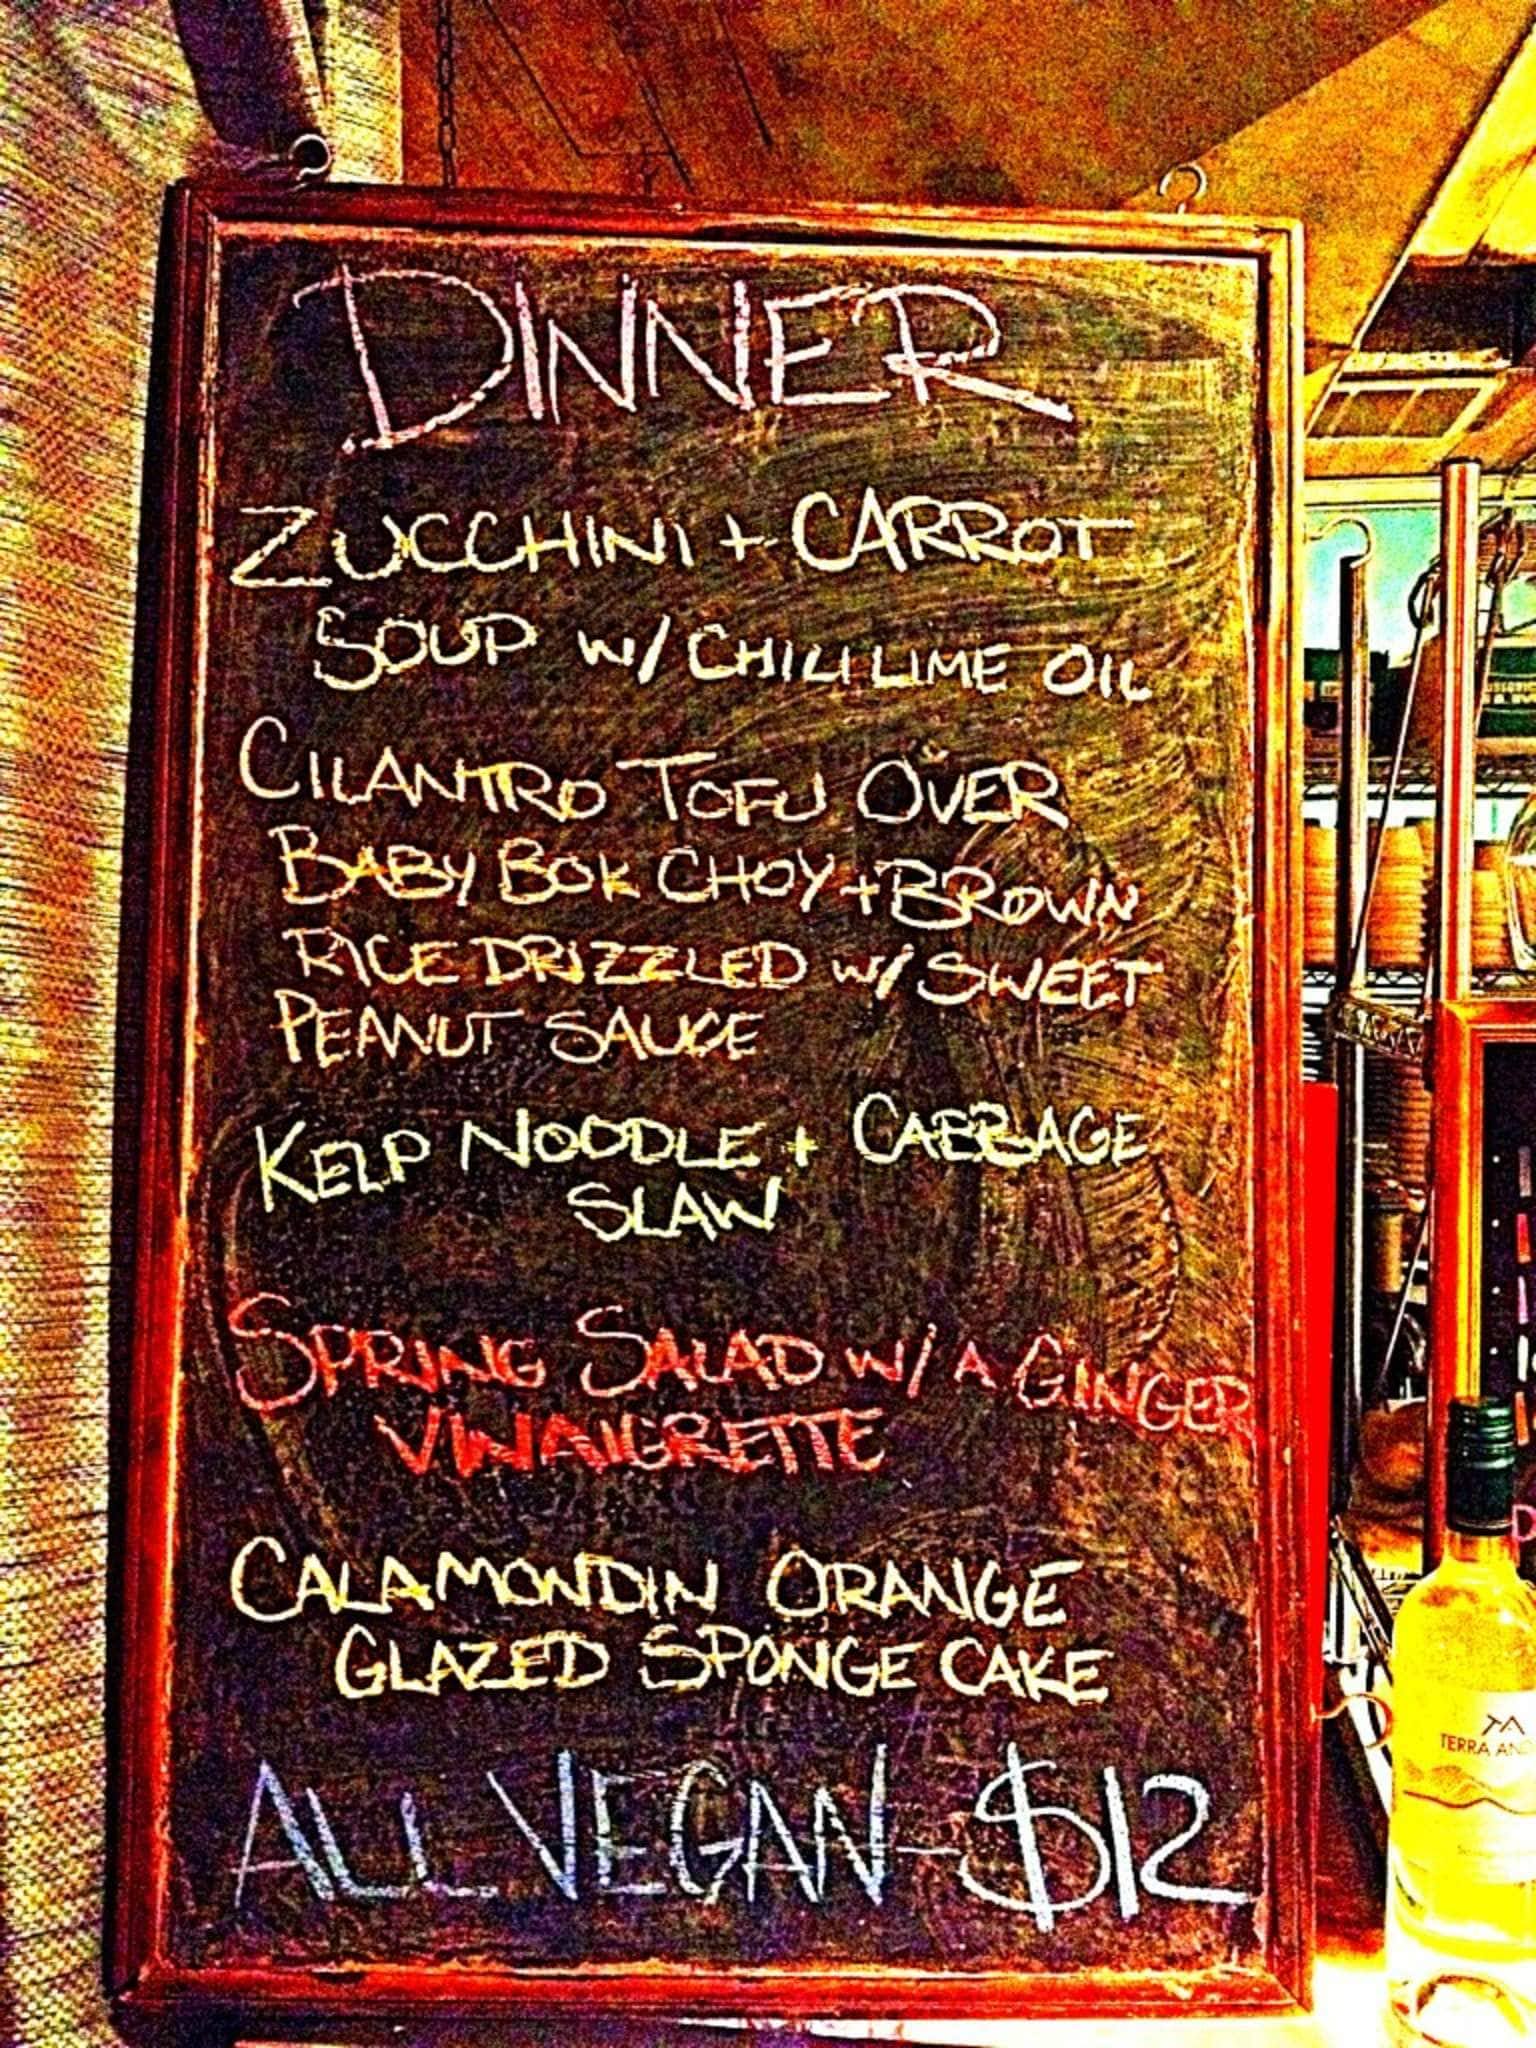 DINNER
ZUCCHINI + CARROT
SOUP W/ CHILI LIME OIL
CILANTRO TOFU OVER
BABY BOK CHOY + BROWN
RICE DRIZZLED W/ SWEET
PEANUT SAUCE
KELP NOODLE + CABBAGE
SLAW
SPRING SALAD W/ A GINGER
VINAIGRETTE
CALAMONDIN ORANGE
GLAZED SPONGE CAKE
ALL VEGAN - $12
TA
TERRA AN